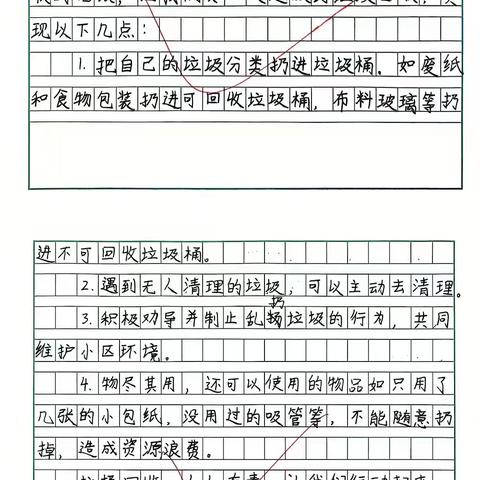 现以下几点：
1. 把自己的垃圾分类扔进垃圾桶。如废纸
和食物包装扔进可回收垃圾桶，布料玻璃等扔
进不可回收垃圾桶。
2. 遇到无人清理的垃圾，可以主动去清理。
扔
3. 积极劝导并制止乱扬垃圾的行为，共同
维护小区环境。
4. 物尽其用，还可以使用的物品如只用了
几张的小包纸，没用过的吸管等，不能随意扔
掉，造成资源浪费。